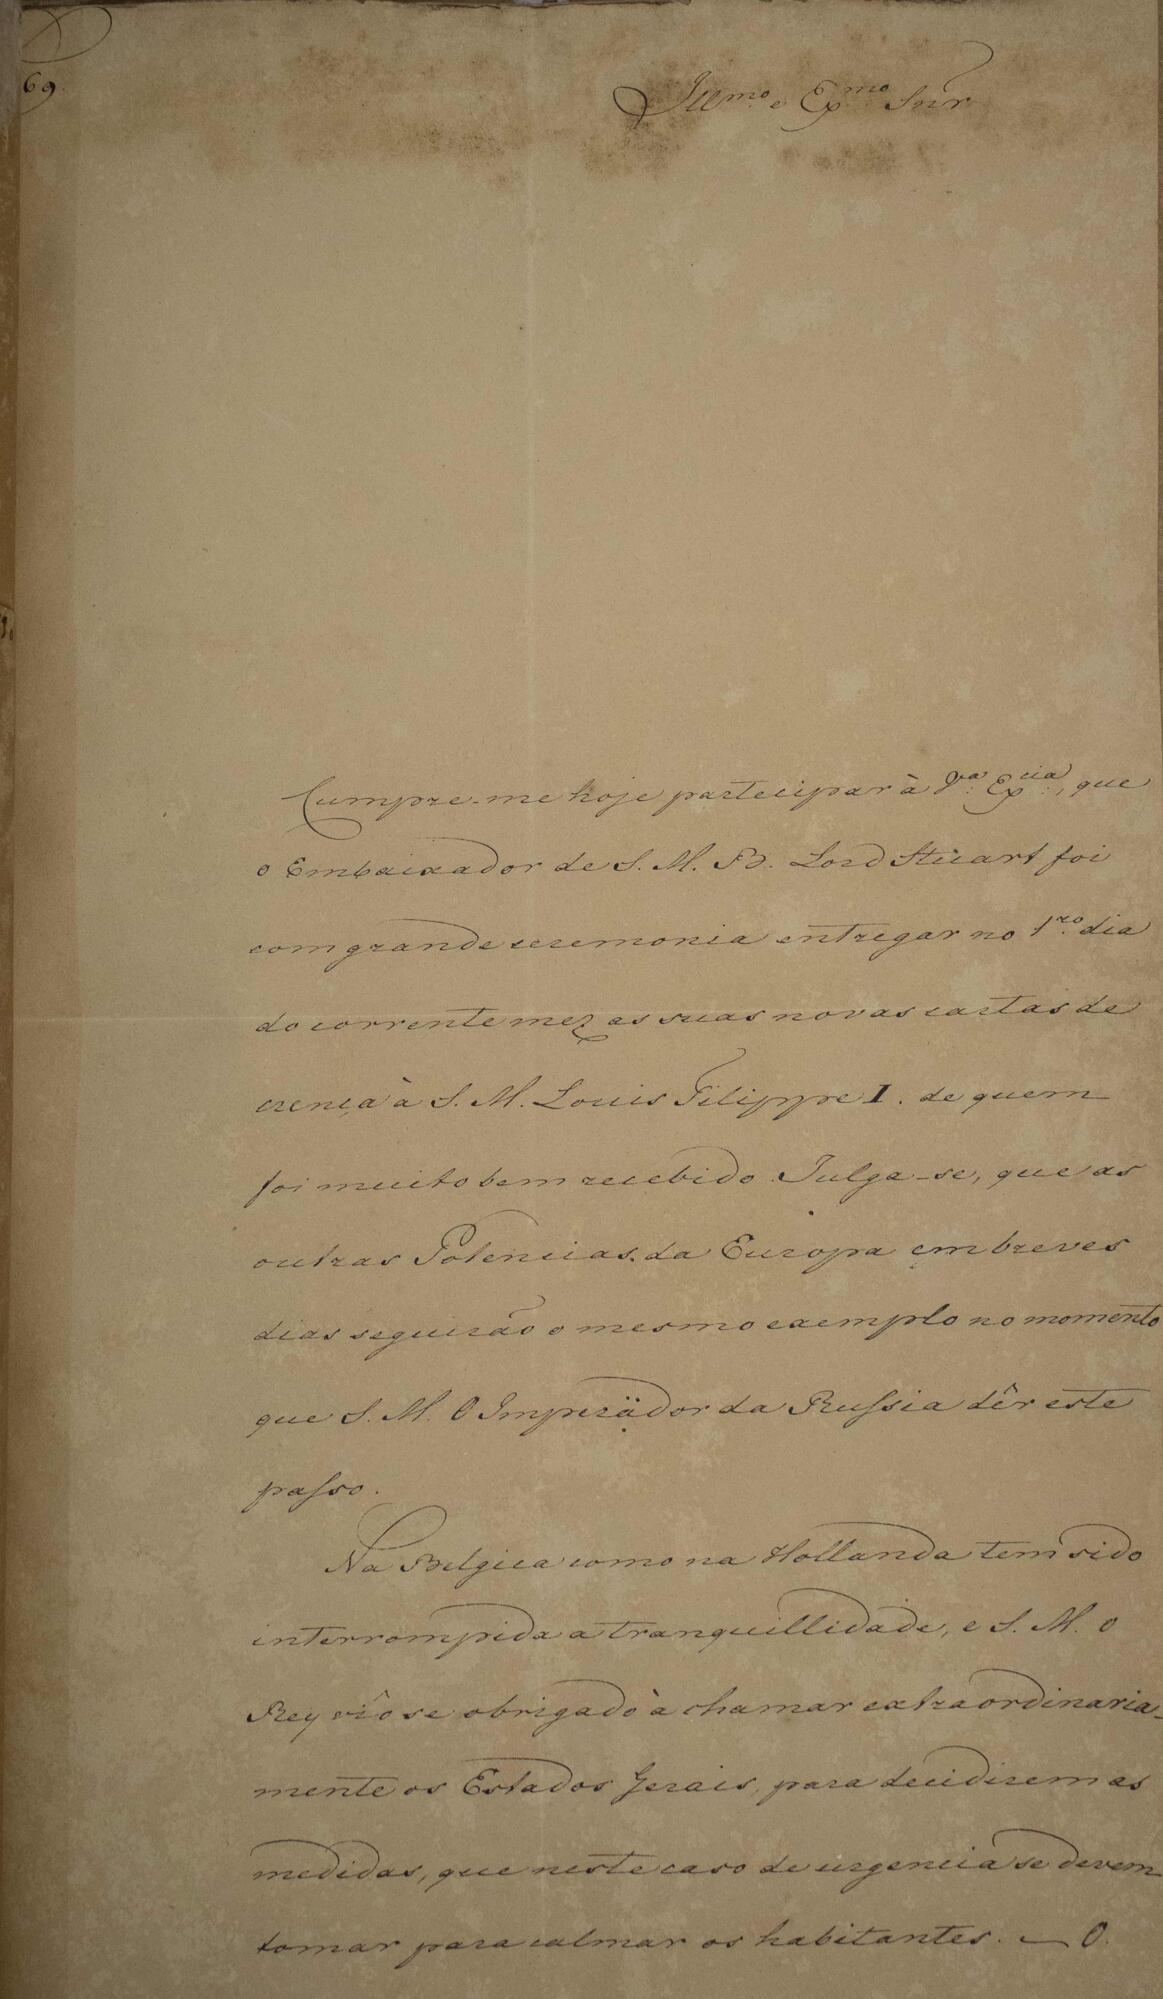 69
Illmo. e Exmo. Snr
Cumpre-me hoje participar à Va. Excia., que
o Embaixador de S. M. B. Lord Stuart foi
com grande ceremonia entregar no 1ro. dia
do corrente mez as suas novas cartas de
crença à S. M. Louis Filippe I. de quem
foi muito bem recebido. Julga-se, que as
outras Potencias da Europa em breves
dias seguirão o mesmo exemplo no momento
que S. M. O Imperador da Russia dêr este
passo.
Na Belgica como na Hollanda tem sido
interrompida a tranquillidade, e S. M. o
Rey vîo se obrigado à chamar extraordinaria-
mente os Estados Gerais, para decidirem as
medidas, que neste caso de urgencia se devem
tomar para calmar os habitantes. — O